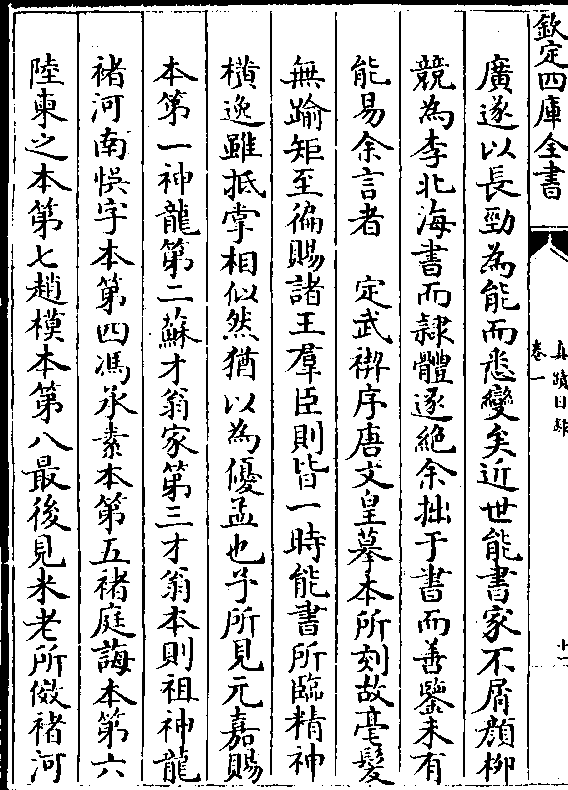 欽定四庫全書
真蹟日錄
卷一
十一
廣遂以長勁為能而悉變矣近世能書家不屑顏柳
競為李北海書而隸體遂絶余拙于書而善鑒未有
能易余言者　定武禊序唐文皇摹本所刻故毫髮
無踰矩至徧賜諸王羣臣則皆一時能書所臨精神
橫逸雖抵掌相似然猶以為優孟也予所見元嘉賜
本第一神龍第二蘇才翁家第三才翁本則祖神龍
褚河南悮字本第四馮承素本第五褚庭誨本第六
陸柬之本第七趙模本第八最後見米老所倣褚河